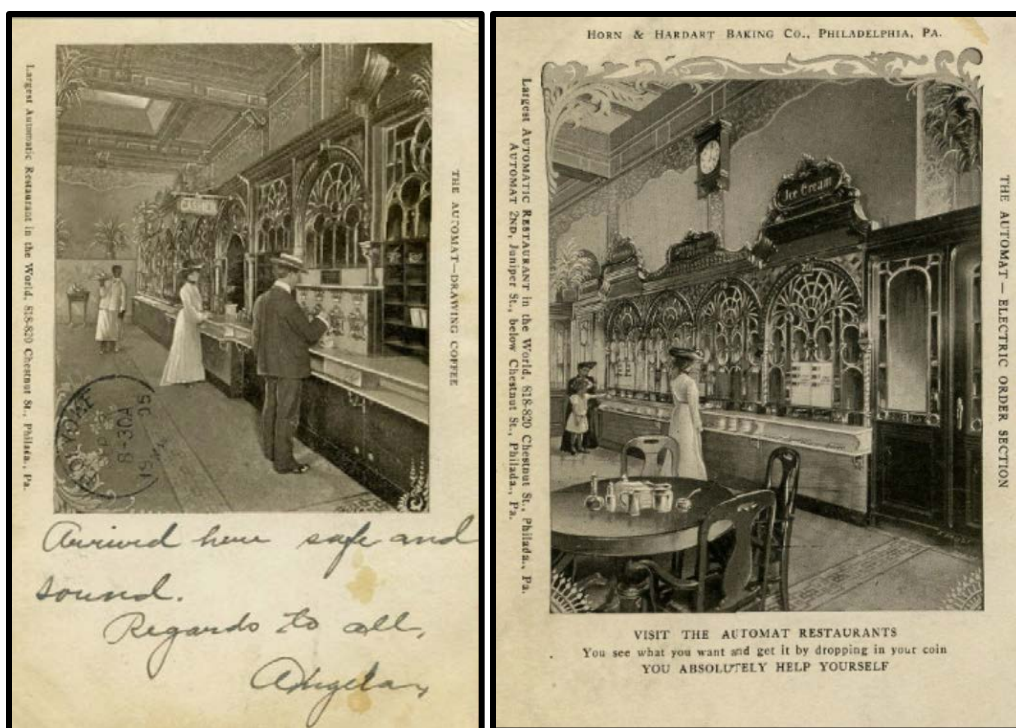 Largest Automatic Restaurant in the World, 818-820 Chestnut St., Philada., Pa.
THE AUTOMAT—DRAWING COFFEE
8-30A
1905
Arrived here safe and
sound.
Regards to all,
Angela
HORN & HARDART BAKING CO., PHILADELPHIA, PA.
Largest AUTOMATIC RESTAURANT in the World, 818-820 Chestnut St., Philada., Pa.
AUTOMAT 2ND, Juniper St., below Chestnut St., Philada., Pa.
Ice Cream
THE AUTOMAT — ELECTRIC ORDER SECTION
VISIT THE AUTOMAT RESTAURANTS
You see what you want and get it by dropping in your coin
YOU ABSOLUTELY HELP YOURSELF